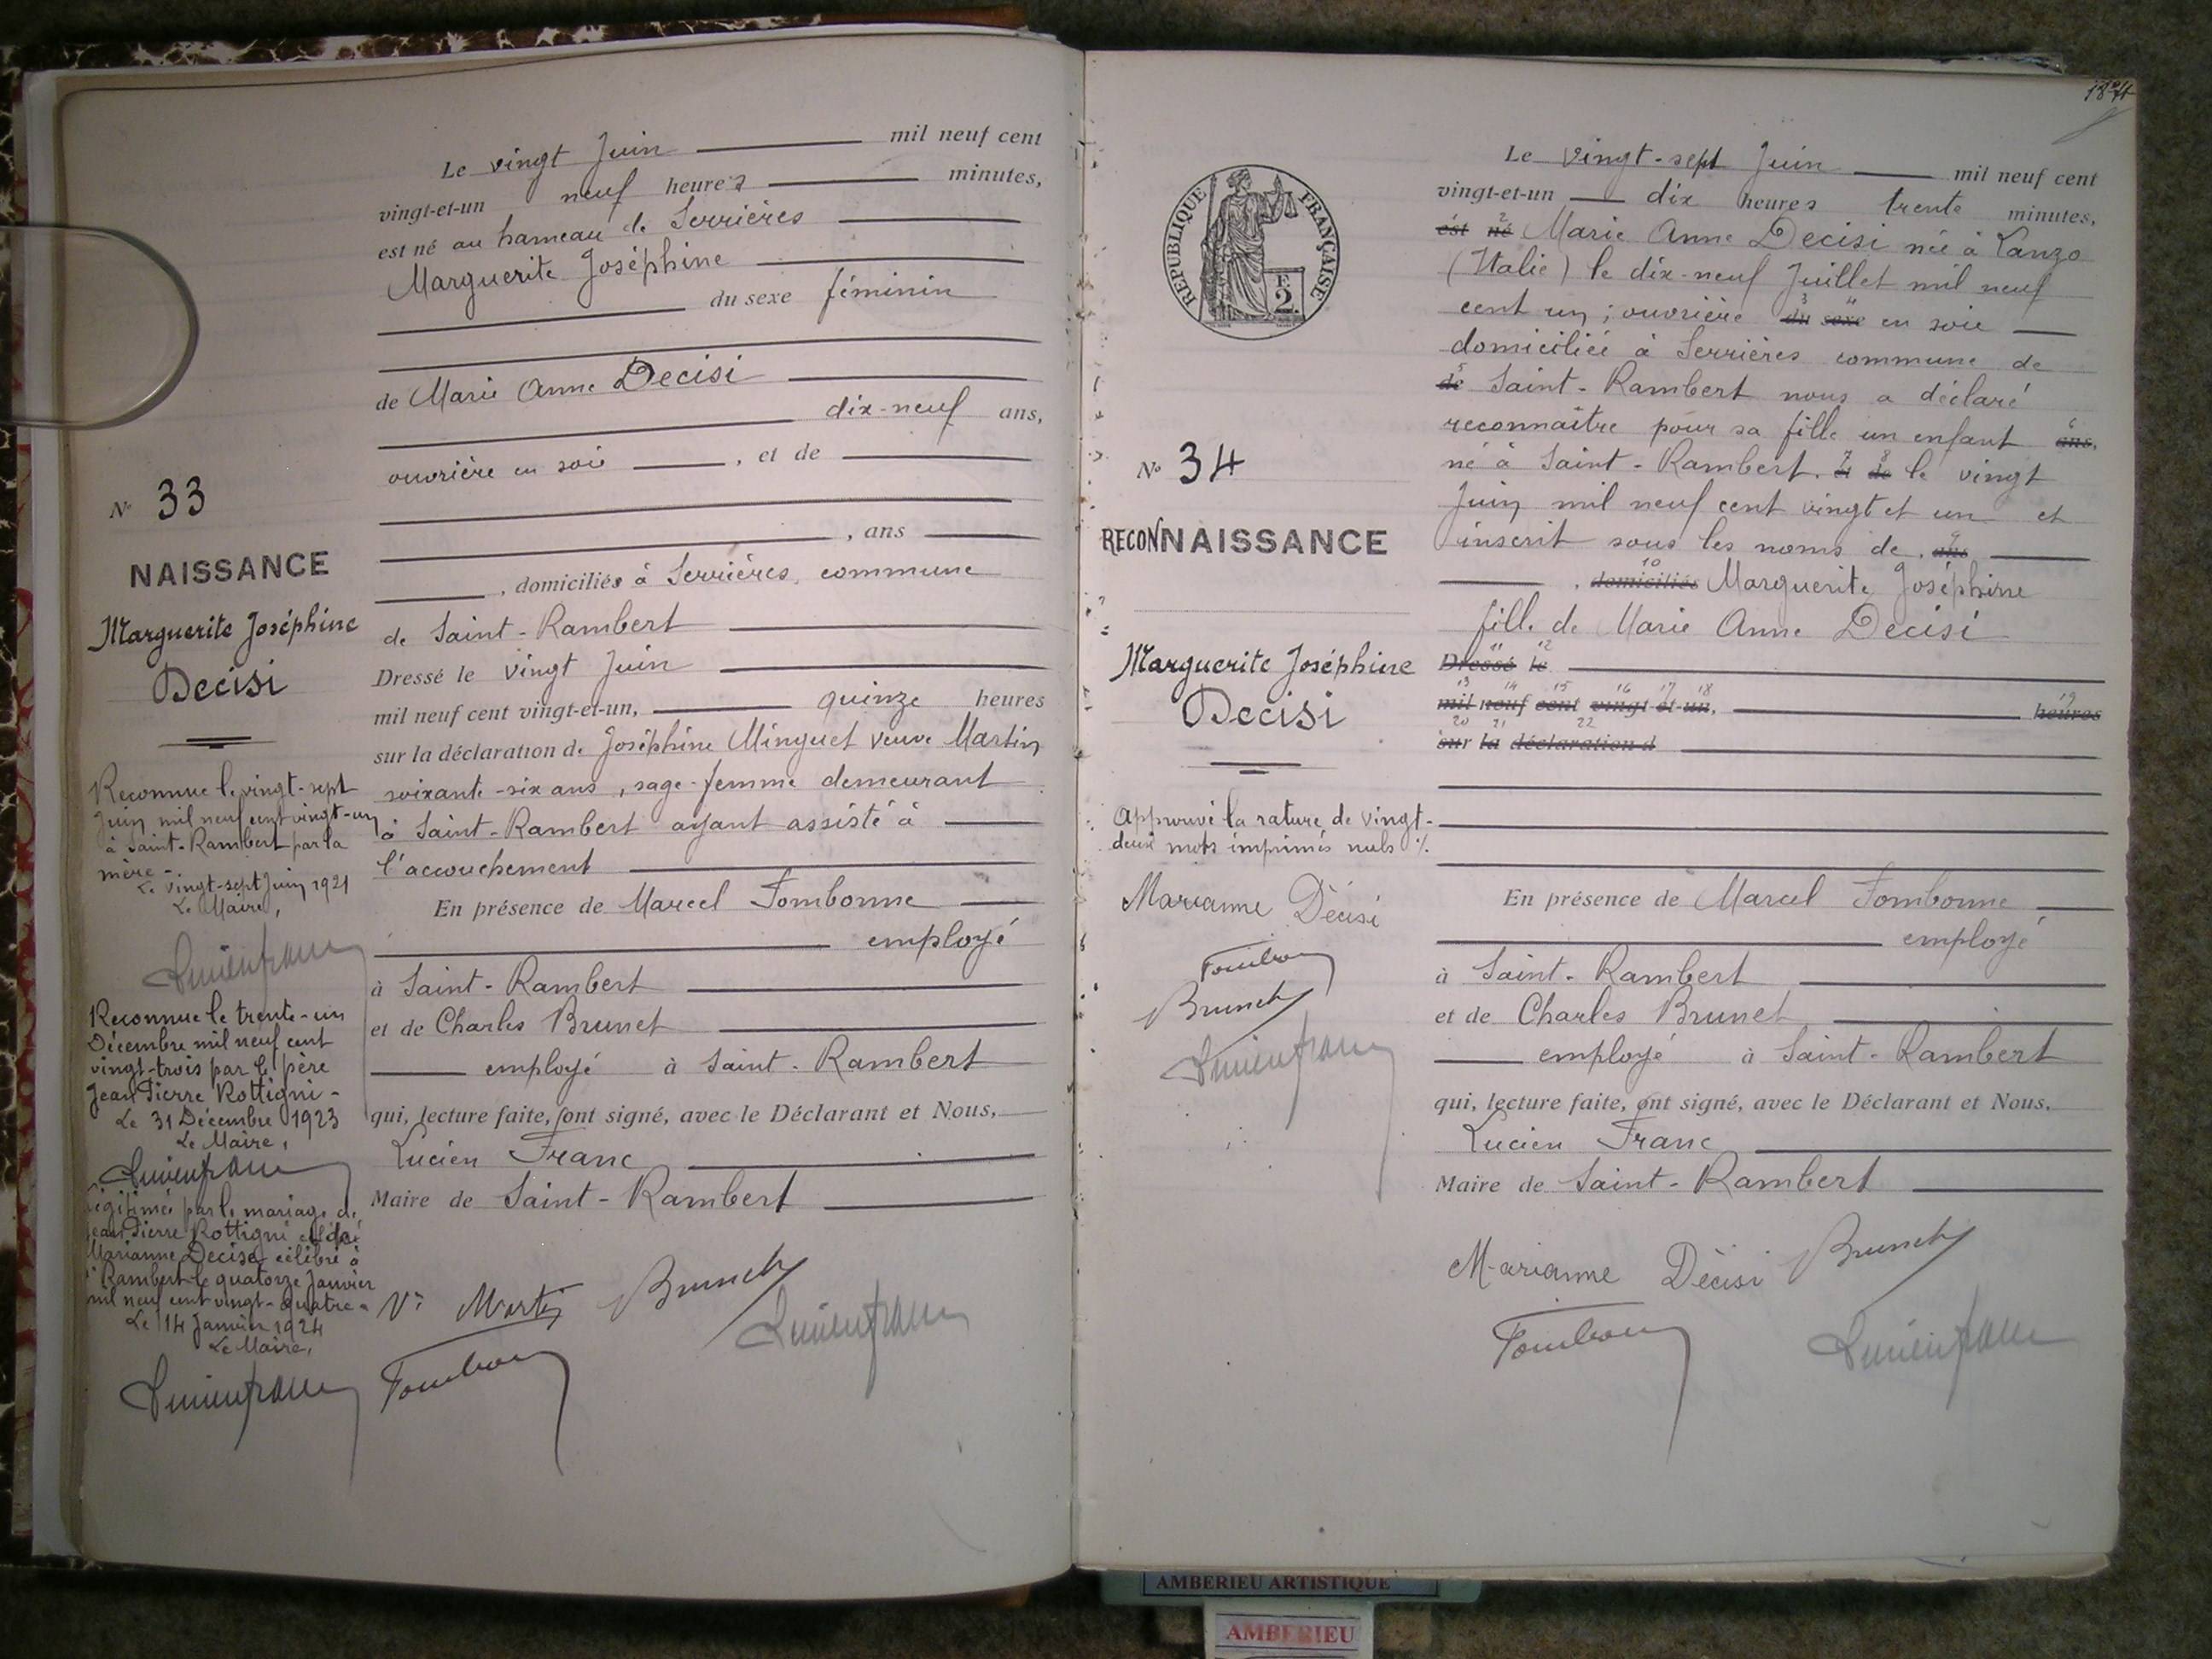 Le vingt Juin mil neuf cent
vingt-et-un neuf heures minutes,
est né au hameau de Serrières
Marguerite Joséphine
du sexe féminin
de Marie Anne Decisi
dix-neuf ans,
ouvrière en soie , et de
, ans
, domiciliés à Serrières, commune
de Saint-Rambert
Dressé le vingt Juin
mil neuf cent vingt-et-un, quinze heures
sur la déclaration de Joséphine Minguet veuve Martin
soixante-six ans, sage-femme demeurant
à Saint-Rambert ayant assisté à
l'accouchement
En présence de Marcel Fombonne
employé
à Saint-Rambert
et de Charles Brunet
employé à Saint-Rambert
qui, lecture faite, ont signé, avec le Déclarant et Nous,
Lucien Franc
Maire de Saint-Rambert
Vve Martin Brunet
Fombonne Lucien Franc
N° 33
NAISSANCE
Marguerite Joséphine
Decisi
Reconnue le vingt-sept
Juin mil neuf cent vingt-un
à Saint-Rambert par la
mère -
Le vingt-sept Juin 1921
Le Maire,
Lucien Franc
Reconnue le trente-un
Décembre mil neuf cent
vingt-trois par le père
Jean Pierre Rottigni -
Le 31 Décembre 1923
Le Maire,
Lucien Franc
Légitimée par le mariage de
Jean Pierre Rottigni et de
Marianne Decise célébré à
Rambert le quatorze Janvier
mil neuf cent vingt-quatre -
Le 14 Janvier 1924
Le Maire,
Lucien Franc
REPUBLIQUE FRANÇAISE
2
N° 34
RECONNAISSANCE
Marguerite Joséphine
Decisi
Approuvé la rature de vingt-
deux mots imprimés nuls %.
Marianne Décisi
Fombonne
Brunet
Lucien Franc
Le vingt-sept Juin mil neuf cent
vingt-et-un dix heures trente minutes,
est né 2 Marie Anne Decisi née à Lanzo
(Italie) le dix-neuf Juillet mil neuf
cent un ; ouvrière du 3 sexe 4 en soie
domiciliée à Serrières commune de
de 5 Saint-Rambert nous a déclaré
reconnaître pour sa fille un enfant ans. 6
né à Saint-Rambert. 7 8 le vingt
Juin mil neuf cent vingt et un et
inscrit sous les noms de , ans 9
, domiciliés 10 Marguerite Joséphine
fille de Marie Anne Decisi
Dressé 11 le 12
mil 13 neuf 14 cent 15 vingt 16 et 17 un 18, heures 19
sur 20 la 21 déclaration d 22
En présence de Marcel Fombonne
employé
à Saint-Rambert
et de Charles Brunet
employé à Saint-Rambert
qui, lecture faite, ont signé, avec le Déclarant et Nous,
Lucien Franc
Maire de Saint-Rambert
Marianne Décisi Brunet
Fombonne Lucien Franc
AMBERIEU ARTISTIQUE
AMBERIEU